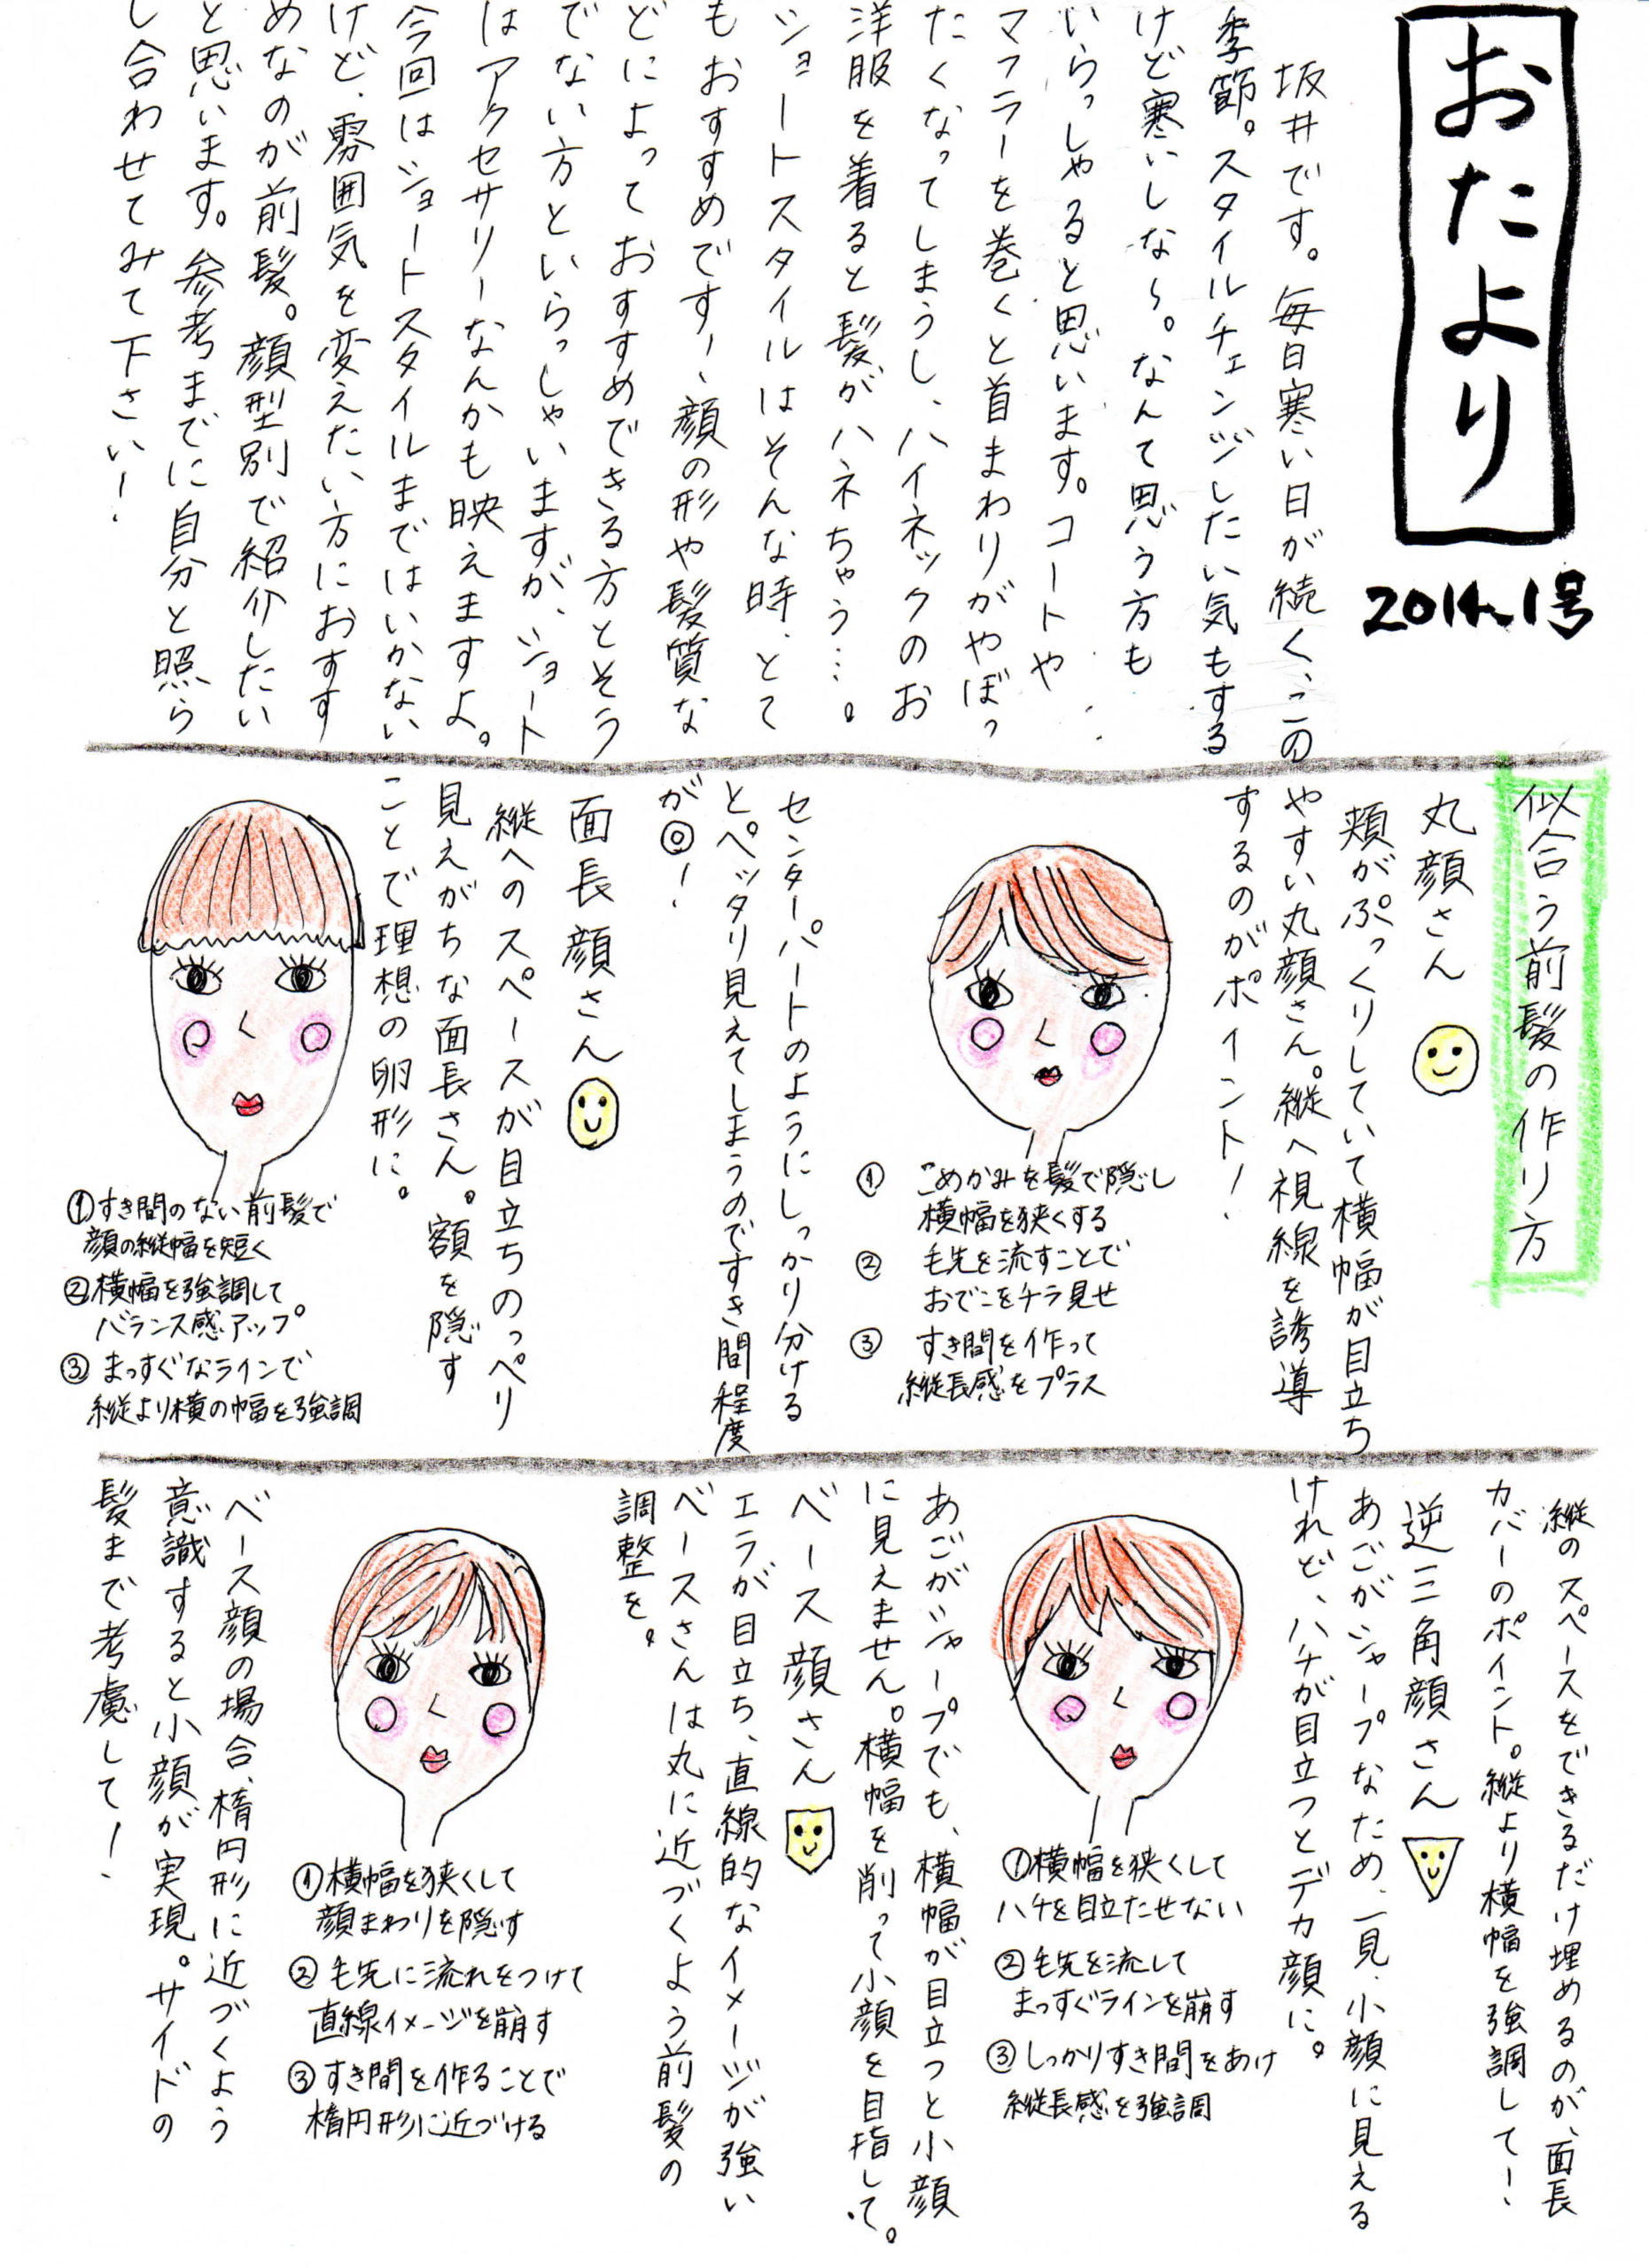 おたより
2014.1号
坂井です。毎日寒い日が続く、この
季節。スタイルチェンジしたい気もする
けど寒いしな〜。なんて思う方も
いらっしゃると思います。コートや
マフラーを巻くと首まわりがやぼっ
たくなってしまうし、ハイネックのお
洋服を着ると髪がハネちゃう…。
ショートスタイルはそんな時、とて
もおすすめです!、顔の形や髪質な
どによっておすすめできる方とそう
でない方といらっしゃいますが、ショート
はアクセサリーなんかも映えますよ。
今回はショートスタイルまではいかない
けど、雰囲気を変えたい方におすす
めなのが前髪。顔型別で紹介したい
と思います。参考までに自分と照ら
し合わせてみて下さい!
似合う前髪の作り方
丸顔さん
頬がぷっくりしていて横幅が目立ち
やすい丸顔さん。縦へ視線を誘導
するのがポイント!
① こめかみを髪で隠し
横幅を狭くする
② 毛先を流すことで
おでこをチラ見せ
③ すき間を作って
縦長感をプラス
センターパートのようにしっかり分ける
とペッタリ見えてしまうのですき間程度
が◎!
面長顔さん
縦へのスペースが目立ちのっぺり
見えがちな面長さん。額を隠す
ことで理想の卵形に。
①すき間のない前髪で
顔の縦幅を短く
②横幅を強調して
バランス感アップ
③まっすぐなラインで
縦より横の幅を強調
縦のスペースをできるだけ埋めるのが、面長
カバーのポイント。縦より横幅を強調して!
逆三角顔さん
あごがシャープなため、一見、小顔に見える
けれど、ハチが目立つとデカ顔に。
①横幅を狭くして
ハチを目立たせない
②毛先を流して
まっすぐラインを崩す
③しっかりすき間をあけ
縦長感を強調
あごがシャープでも、横幅が目立つと小顔
に見えません。横幅を削って小顔を目指して。
ベース顔さん
エラが目立ち、直線的なイメージが強い
ベースさんは丸に近づくよう前髪の
調整を。
①横幅を狭くして
顔まわりを隠す
②毛先に流れをつけて
直線イメージを崩す
③すき間を作ることで
楕円形に近づける
ベース顔の場合、楕円形に近づくよう
意識すると小顔が実現。サイドの
髪まで考慮して!